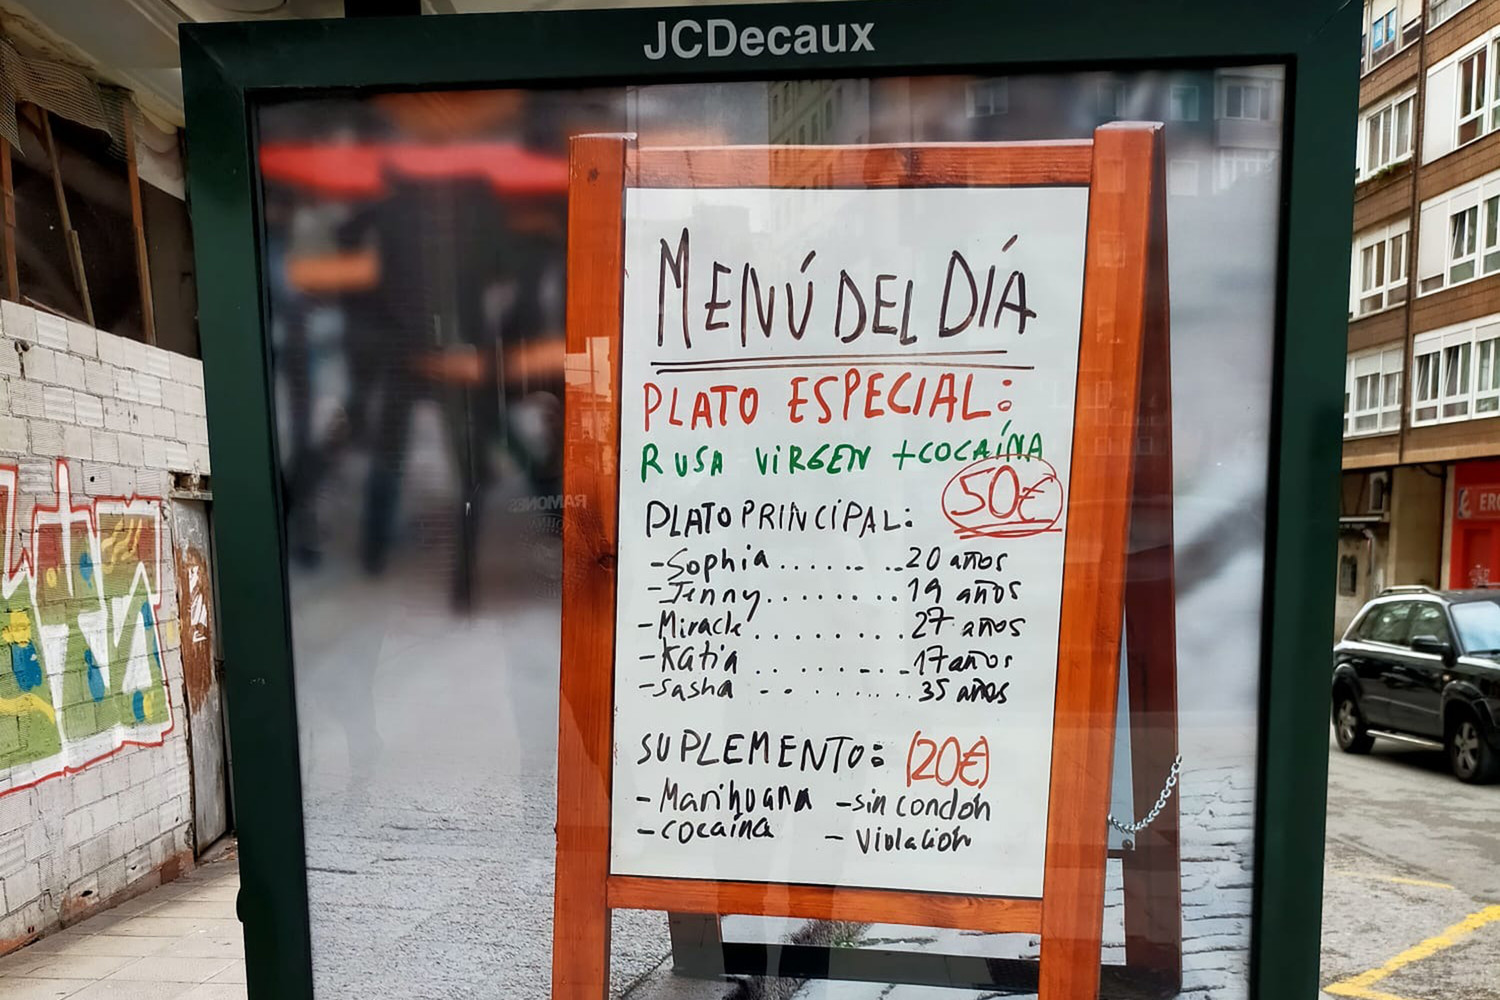 JCDecaux
MENÚ DEL DÍA
PLATO ESPECIAL:
RUSA VIRGEN + COCAÍNA
50€
PLATO PRINCIPAL:
- Sophia ........ 20 años
- Jenny ........ 19 años
- Miracle ......... 27 años
- Katia ........ 17 años
- Sasha ......... 35 años
SUPLEMENTO: (20€)
- Marihuana - sin condón
- cocaína - Violación
RAMONES